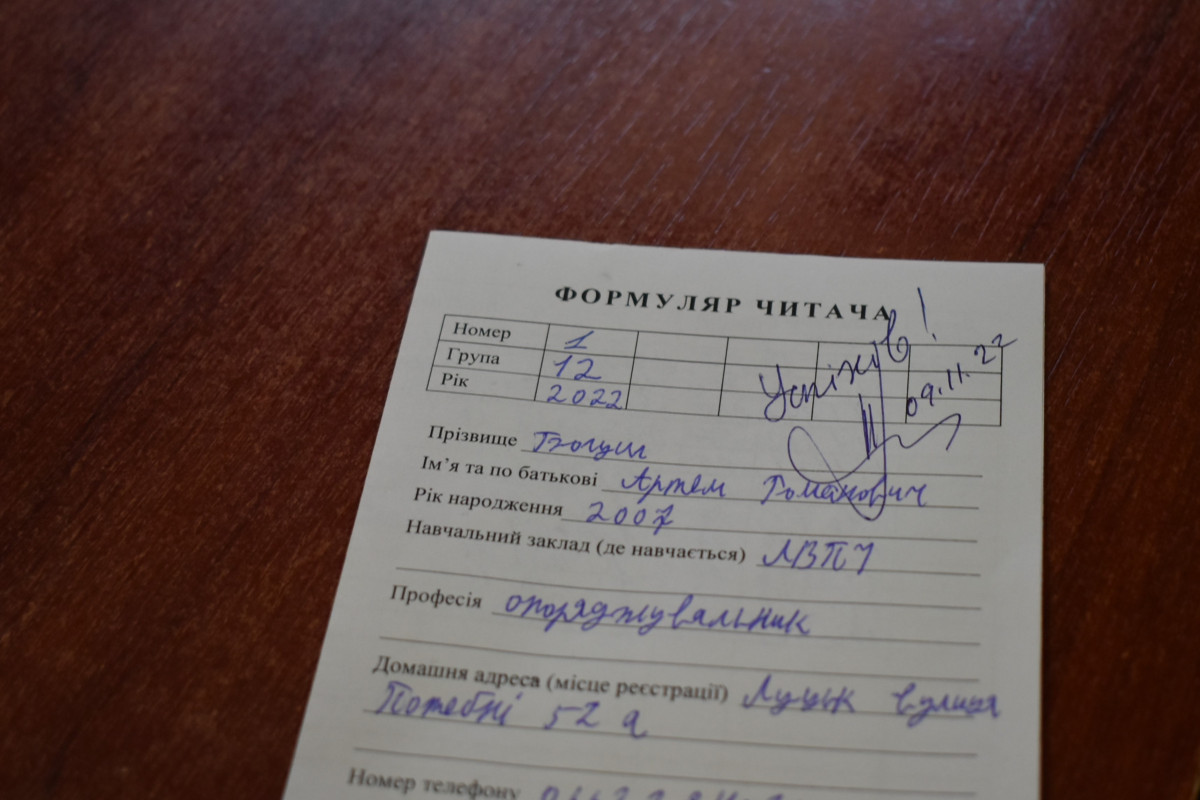 ФОРМУЛЯР ЧИТАЧА
Номер 1
Група 12
Рік 2022
Успіхів!
09.11.22
Прізвище Богуш
Ім’я та по батькові Артем Романович
Рік народження 2007
Навчальний заклад (де навчається) ЛВПУ
Професія опоряджувальник
Домашня адреса (місце реєстрації) Луцьк вулиця
Потебні 52 а
Номер телефону